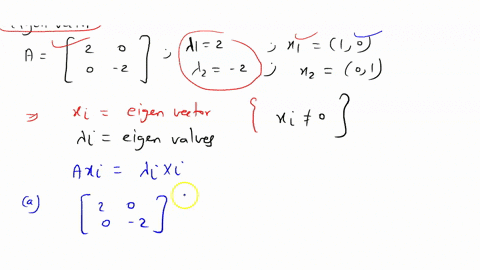 A = [ 2 0 ; λ1 = 2 ; x1 = (1, 0)
0 -2 ] λ2 = -2 ; x2 = (0, 1)
⇒ xi = eigen vector { xi ≠ 0 }
λi = eigen values
Axi = λi Xi
(a) [ 2 0
0 -2 ]